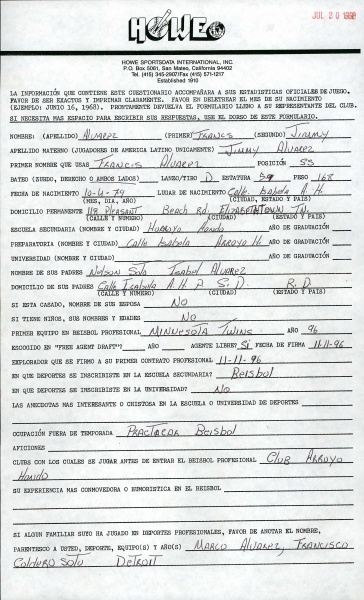 JUL 20 1998
HOWE
HOWE SPORTSDATA INTERNATIONAL, INC.
P.O. Box 5061, San Mateo, California 94402
Tel. (415) 345-2907/Fax (415) 571-1217
Established 1910
LA INFORMACIÓN QUE CONTIENE ESTE CUESTIONARIO ACOMPAÑARA A SUS ESTADISTICAS OFICIALES DE JUEGO.
FAVOR DE SER EXACTOS Y IMPRIMIR CLARAMENTE. FAVOR EN DELETREAR EL MES DE SU NACIMIENTO
(EJEMPLO: JUNIO 16, 1968). PRONTAMENTE DEVUELVA EL FORMULARIO LLENO A SU REPRESENTANTE DEL CLUB.
SI NECESITA MAS ESPACIO PARA ESCRIBIR SUS RESPUESTAS, USE EL DORSO DE ESTE FORMULARIO.
NOMBRE: (APELLIDO) Alvarez (PRIMER) Francis (SEGUNDO) Jimmy
APELLIDO MATERNO (JUGADORES DE AMERICA LATINO UNICAMENTE) Jimmy Alvarez
PRIMER NOMBRE QUE USAS Francis Alvarez POSICIÓN SS
BATEO (ZURDO, DERECHO O AMBOS LADOS) LANZO/TIRO D ESTATURA PESO 168
FECHA DE NACIMIENTO 10-4-79 LUGAR DE NACIMIENTO Calle. Isabela A.H.
(MES, DIA, AÑO) (CIUDAD, ESTADO Y PAIS)
DOMICILIO PERMANENTE 118 Pleasant Beach Rd. Elizabethtown TN.
(CALLE Y NUMERO) (CIUDAD) (ESTADO Y PAIS)
ESCUELA SECUNDARIA (NOMBRE Y CIUDAD) Hondo AÑO DE GRADUACIÓN
PREPARATORIA (NOMBRE Y CIUDAD) Calle Isabela Arroyo H. AÑO DE GRADUACIÓN
UNIVERSIDAD (NOMBRE Y CIUDAD) AÑO DE GRADUACIÓN
NOMBRE DE SUS PADRES Nelson Soto Isabel Alvarez
DOMICILIO DE SUS PADRES Calle Isabela A.H.P. S.D. R.D.
(CALLE Y NUMERO) (CIUDAD) (ESTADO Y PAIS)
SI ESTA CASADO, NOMBRE DE SU ESPOSA No
SI TIENE NIÑOS, SUS NOMBRES Y EDADES No
PRIMER EQUIPO EN BEISBOL PROFESIONAL Minnesota Twins AÑO 96
ESCOGIDO EN "FREE AGENT DRAFT"? AGENTE LIBRE? Si FECHA DE FIRMA 11-11-96
EXPLORADOR QUE SE FIRMO A SU PRIMER CONTRATO PROFESIONAL 11-11-96
EN QUE DEPORTES SE INSCRIBISTE EN LA ESCUELA SECUNDARIA? Beisbol
EN QUE DEPORTES SE INSCRIBISTE EN LA UNIVERSIDAD? No
LAS ANECDOTAS MAS INTERESANTE O CHISTOSA EN LA ESCUELA O UNIVERSIDAD DE DEPORTES
OCUPACIÓN FUERA DE TEMPORADA Practicar Beisbol
AFICIONES
CLUBS CON LOS CUALES SE JUGAR ANTES DE ENTRAR EL BEISBOL PROFESIONAL Club Arroyo
Hondo
SU EXPERIENCIA MAS CONMOVEDORA O HUMORISTICA EN EL BEISBOL
SI ALGUN FAMILIAR SUYO HA JUGADO EN DEPORTES PROFESIONALES, FAVOR DE ANOTAR EL NOMBRE,
PARENTESCO A USTED, DEPORTE, EQUIPO(S) Y AÑO(S) Marco Alvarez, Francisco
Soto Detroit